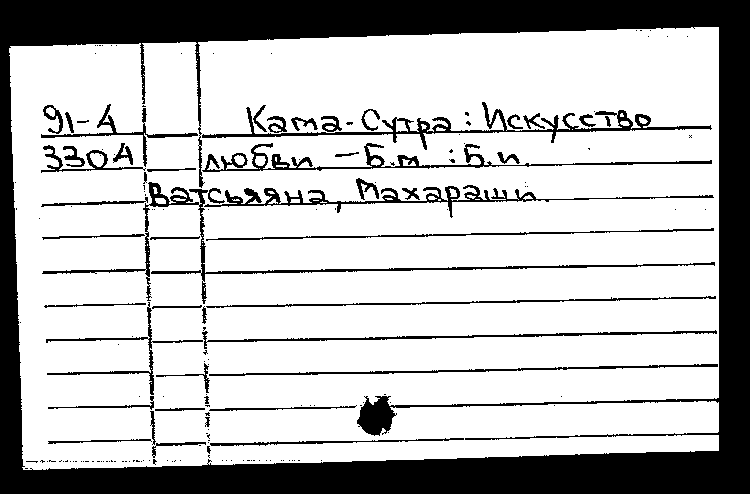 91-4 Кама-Сутра: Искусство
3304 любви. – Б.м : Б.и.
Ватсьяяна, Махараши.